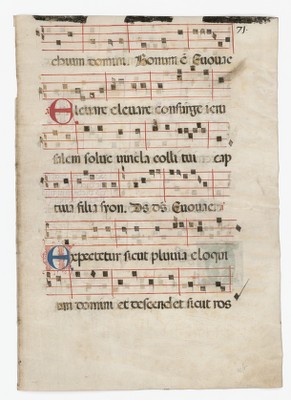 71.
domini. Bonum ē Euouae
Eleuare eleuare consurge ieru
salem solue uincla colli tui cap
tiua filia syon. Ds ds Euouae
Expectetur sicut pluuia eloqui
um domini et descendet sicut ros